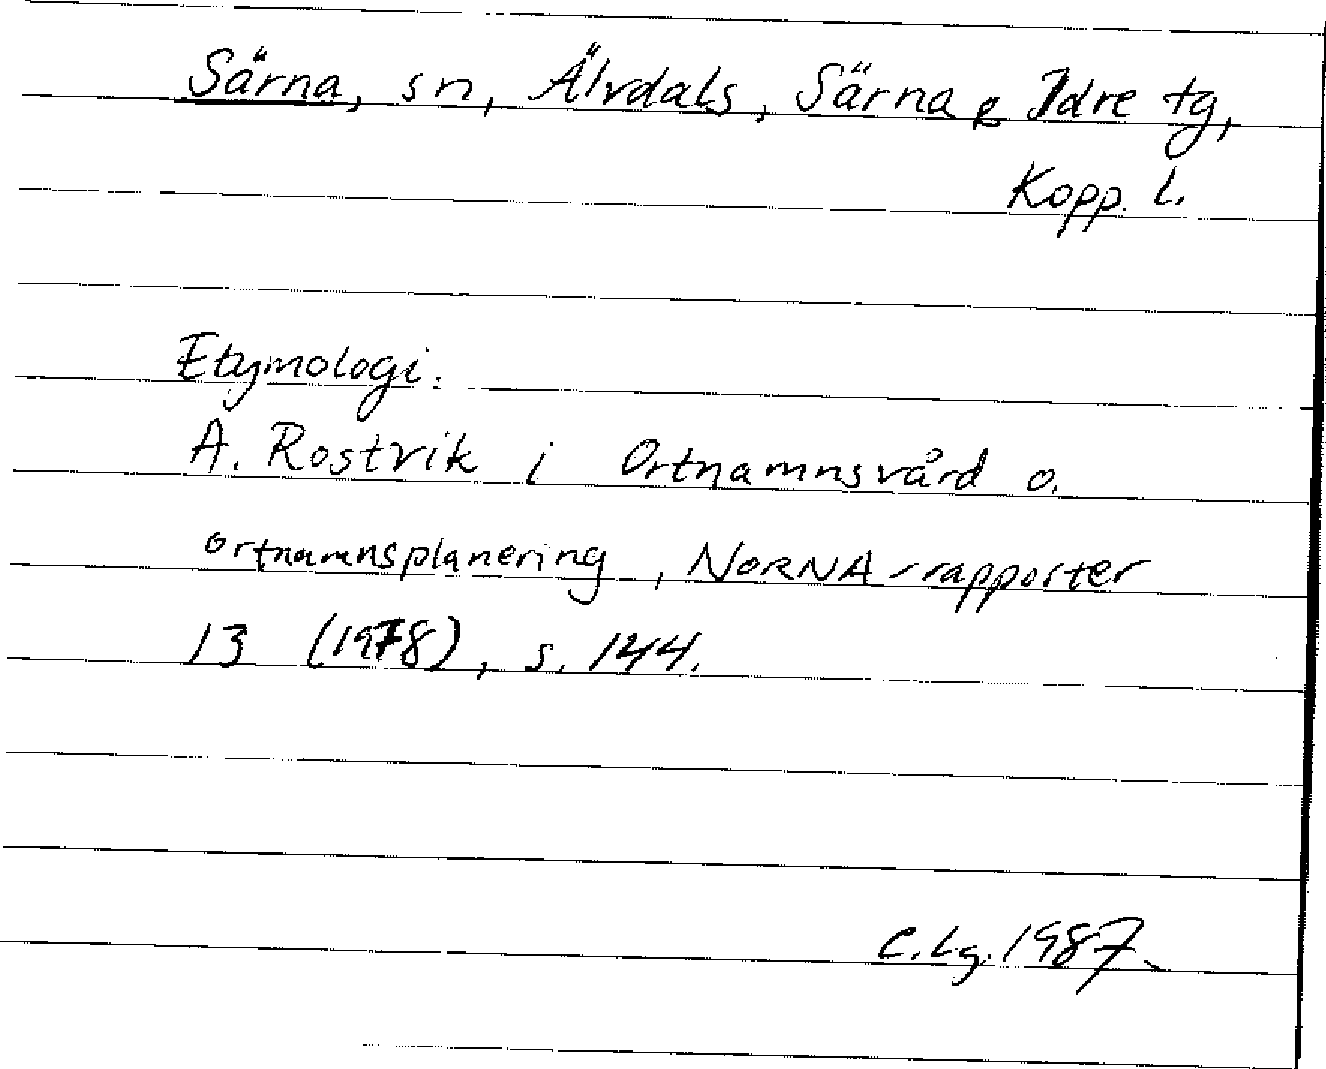 Särna, sn, Älvdals, Särna & Idre tg,
Kopp. l.
Etymologi:
A. Rostvik i Ortnamnsvård o.
ortnamnsplanering, NORNA-rapporter
13 (1978), s. 144.
C.Lg. 1987.